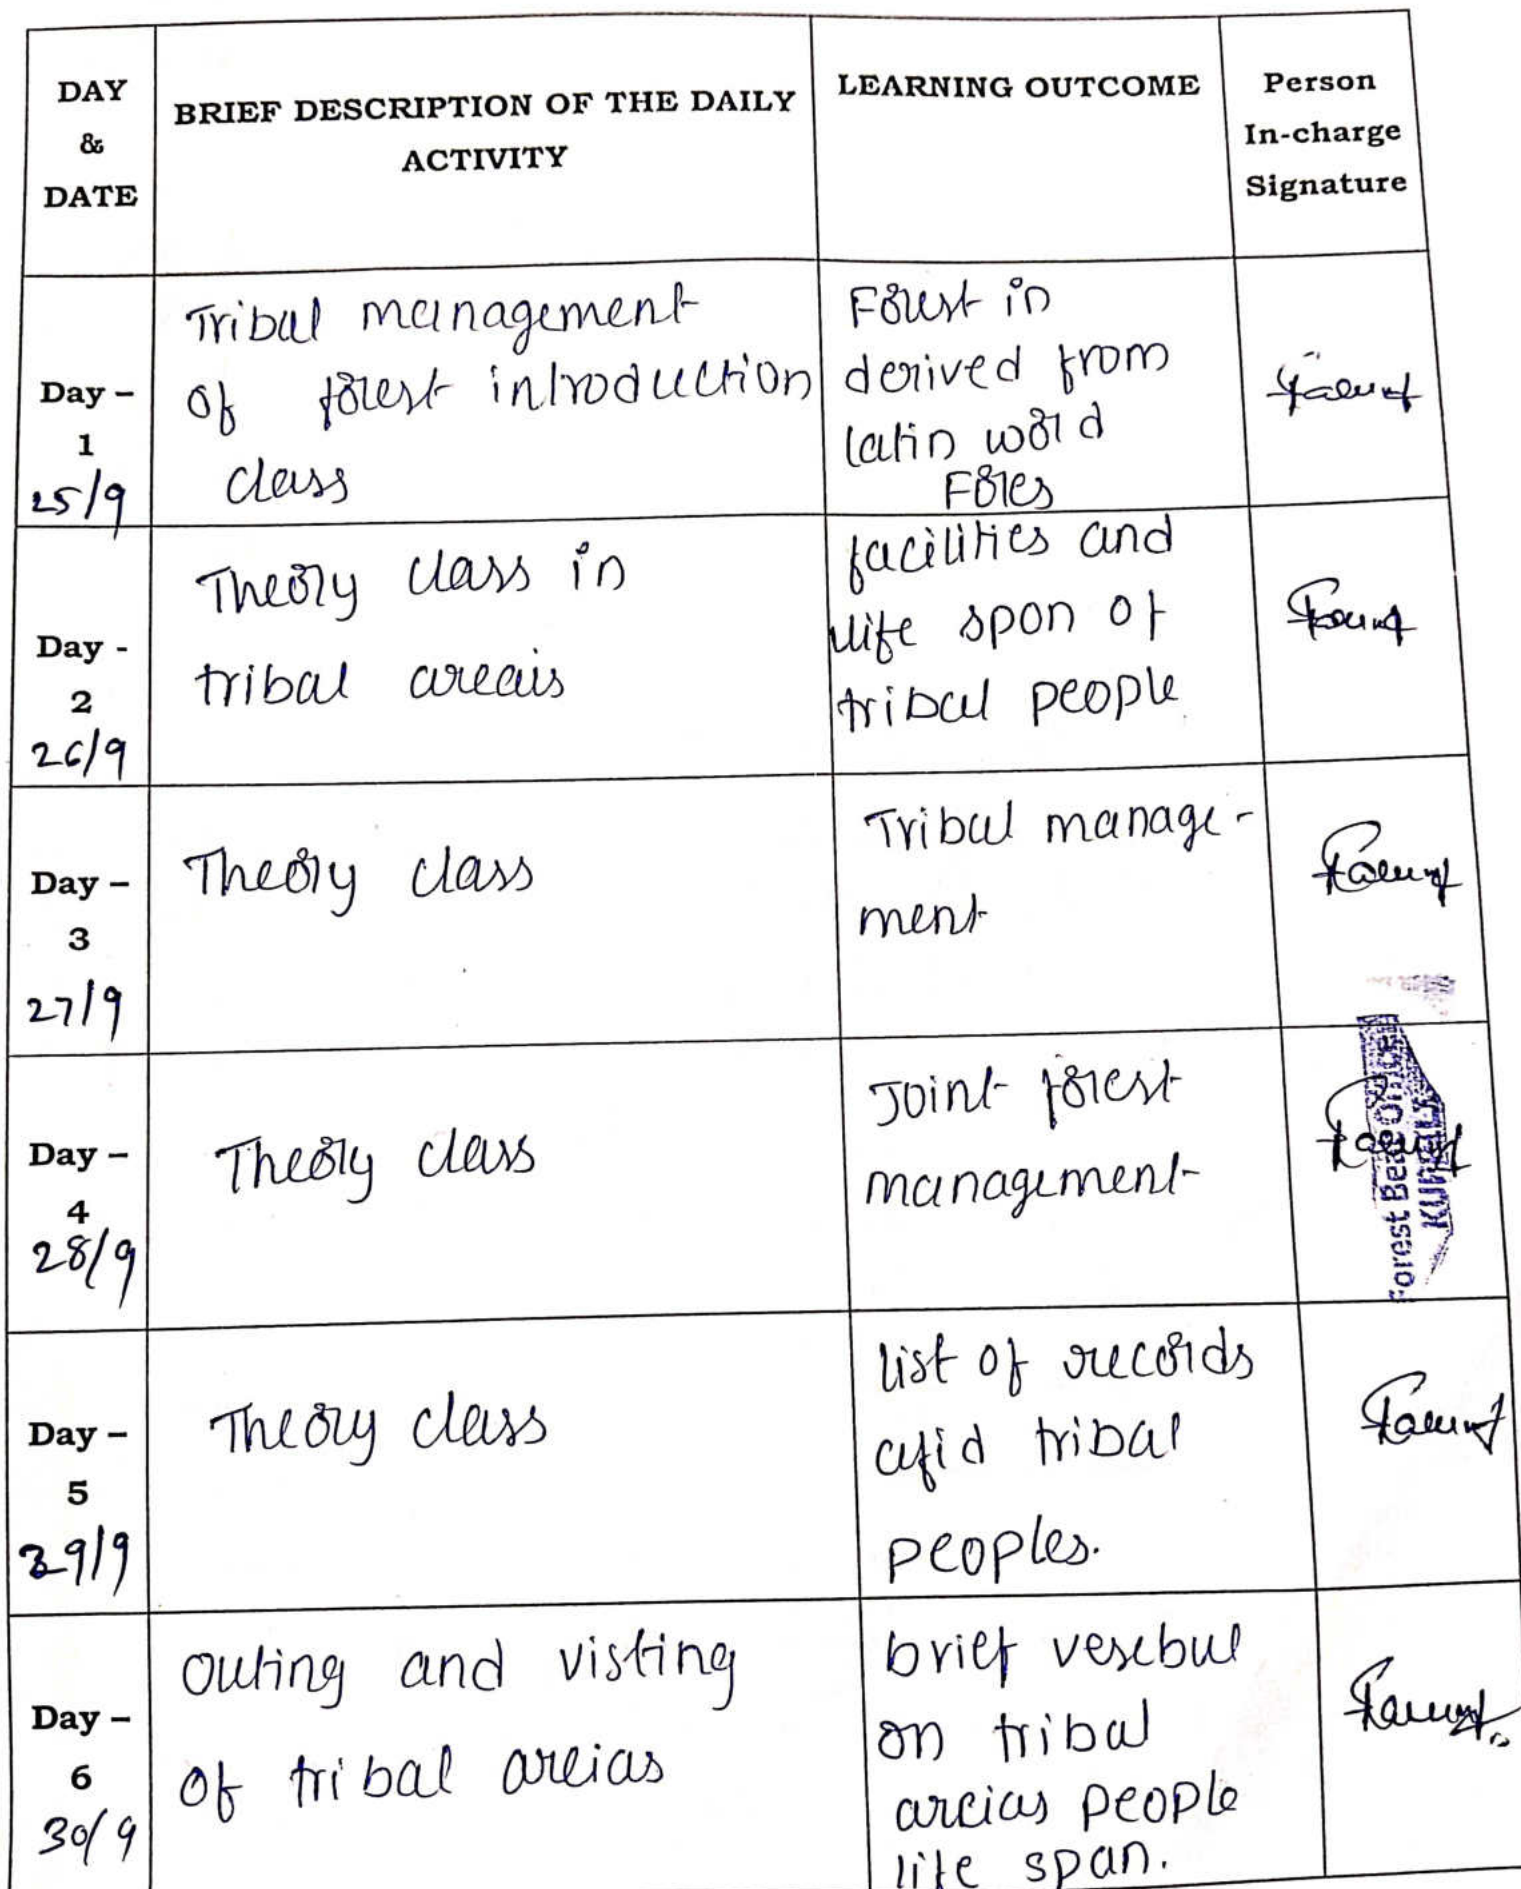 DAY
&
DATE
BRIEF DESCRIPTION OF THE DAILY
ACTIVITY
LEARNING OUTCOME
Person
In-charge
Signature
Day –
1
25/9
Tribal management
of forest introduction
class
Forest in
derived from
latin word
Fores
Day -
2
26/9
Theory class in
tribal areais
facilities and
life spon of
tribal people
Day –
3
27/9
Theory class
Tribal manage-
ment
Day –
4
28/9
Theory class
Joint forest
management
Forest Beat Officer
Day –
5
29/9
Theory class
list of records
tribal
peoples.
Day –
6
30/9
outing and visting
of tribal areias
brief
on tribal
areias people
life span.